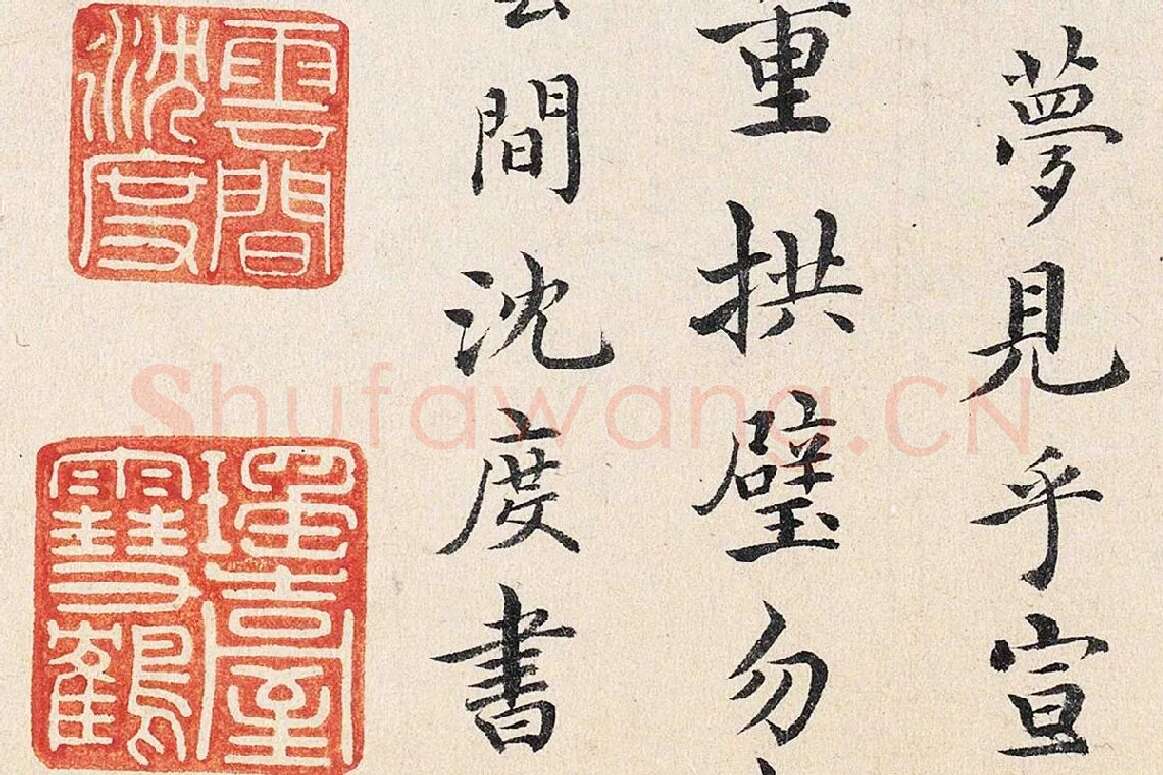 夢見乎宣
重拱璧勿
雲間沈度書
雲間
沈度
瑤臺
雪鶴
Shufawang.CN